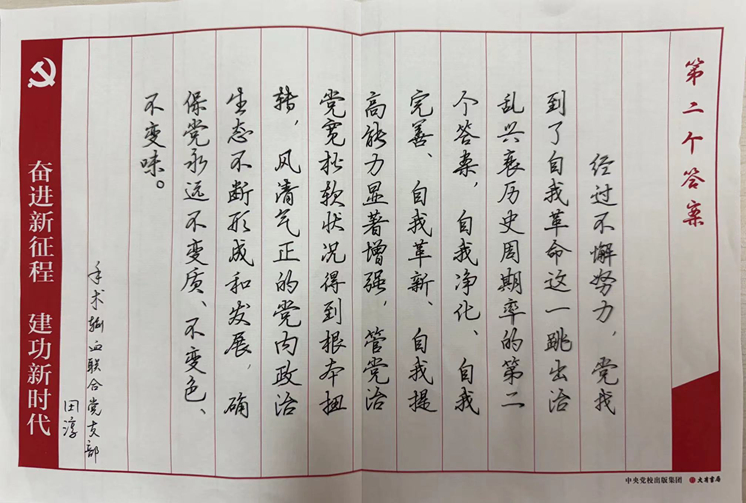 第二个答案
经过不懈努力，党找
到了自我革命这一跳出治
乱兴衰历史周期率的第二
个答案，自我净化、自我
完善、自我革新、自我提
高能力显著增强，管党治
党宽松软状况得到根本扭
转，风清气正的党内政治
生态不断形成和发展，确
保党永远不变质、不变色、
不变味。
手术输血联合党支部
田淳
奋进新征程 建功新时代
中央党校出版集团 大有書局